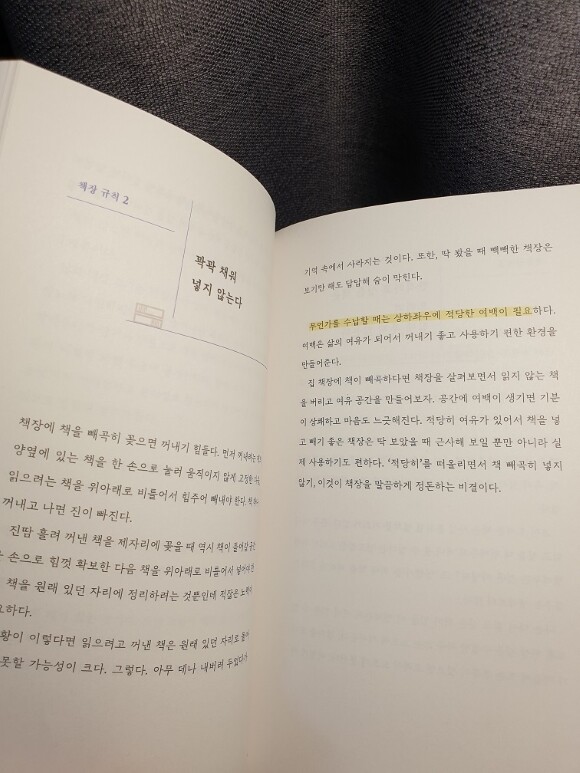 책장 규칙 2
꽉꽉 채워
넣지 않는다
책장에 책을 빼곡히 꽂으면 꺼내기 힘들다. 먼저
양옆에 있는 책을 한 손으로 눌러 움직이지 않게
읽으려는 책을 위아래로 비틀어서 힘주어 빼내야 한다.
꺼내고 나면 진이 빠진다.
진땀 흘려 꺼낸 책을 제자리에 꽂을 때 역시 책이
손으로 힘껏 확보한 다음 책을 위아래로 비틀어서
책을 원래 있던 자리에 정리하려는 것뿐인데
하다.
황이 이렇다면 읽으려고 꺼낸 책은 원래 있던 자리로
못할 가능성이 크다. 그렇다. 아무 데나 내버려
기억 속에서 사라지는 것이다. 또한, 딱 봤을 때 빽빽한 책장은
보기만 해도 답답해 숨이 막힌다.
무언가를 수납할 때는 상하좌우에 적당한 여백이 필요하다.
여백은 삶의 여유가 되어서 꺼내기 좋고 사용하기 편한 환경을
만들어준다.
집 책장에 책이 빼곡하다면 책장을 살펴보면서 읽지 않는 책
을 버리고 여유 공간을 만들어보자. 공간에 여백이 생기면 기분
이 상쾌하고 마음도 느긋해진다. 적당히 여유가 있어서 책을 넣
고 빼기 좋은 책장은 딱 보았을 때 근사해 보일 뿐만 아니라 실
제 사용하기도 편하다. ‘적당히’를 떠올리면서 책 빼곡히 넣지
않기, 이것이 책장을 말끔하게 정돈하는 비결이다.